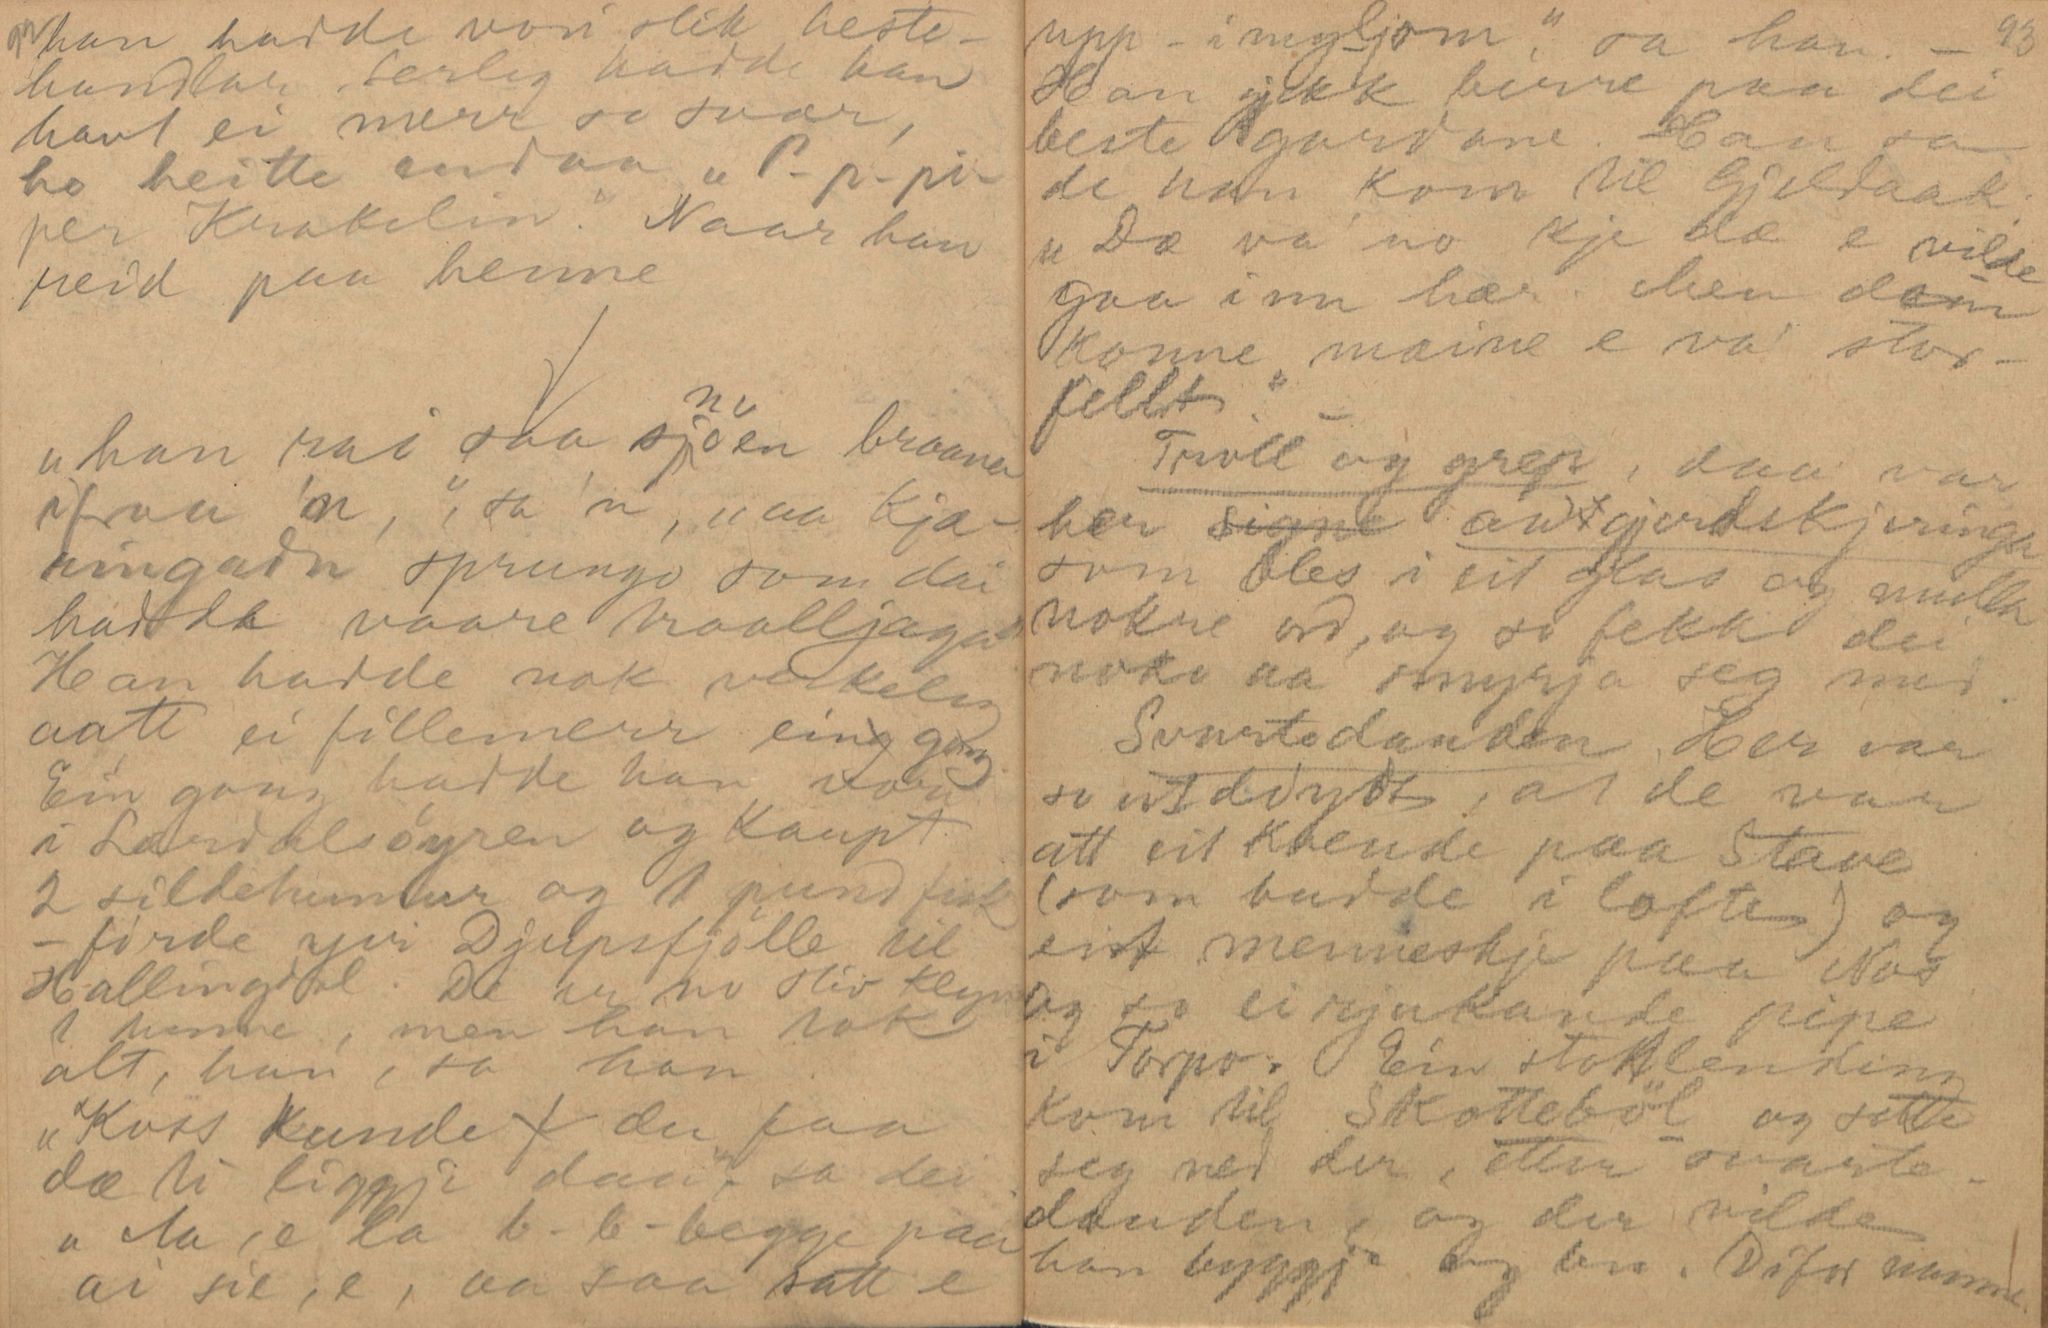 han hadde vori slik heste-
handlar. Serleg hadde han
havt ei merr so svær,
ho heitte endaa „P-p-pi-
per Krakelin." Naar han
reid paa henne
„han rai saa sjøen braana
ifraa 'n," sa 'n, „aa kjæ-
ringadn sprungo som dai
hadda vaare traalljaga
Han hadde nok verkeleg
aatt ei fillemerr ein gong
Ein gong hadde han vori
i Lærdalsøyren og kaupt
2 sildetunnur og 1 pund fisk
- førde yvi Djupsfjølle til
Hallingdal. De er no stiv kløv
1 tunne, men han tok
alt, han, sa han.
„Koss kunde du faa
dæ ti liggji daa", sa dei.
„Aa, e la b-b-begge paa
ai sie, e, aa saa satt e
93
upp-imyljom," sa han. -
Han gjekk birre paa dei
beste gardane. Han sa
de han kom til Gjeldaak:
„Dæ va no kje dæ e vilde
gaa inn her. Men dom
konne maine e va' stor-
fellt." -
Troll og grep, daa var
her signe audgjordskjeringa
som bles i eit glas og mulla
nokre ord, og so fekk dei
noko aa smyrja seg med.
Svartedauden. Her var
so utdøydt, at de var
att eit kvende paa Stave
(som budde i loftet) og
eit menneskje paa Nos
og so ei rjukande pipe
i Torpo. Ein stoklending
kom til Skottebøl og sette
seg ned der, etter svarte-
dauden, og der vilde
han byggje og bu. Difor namne.